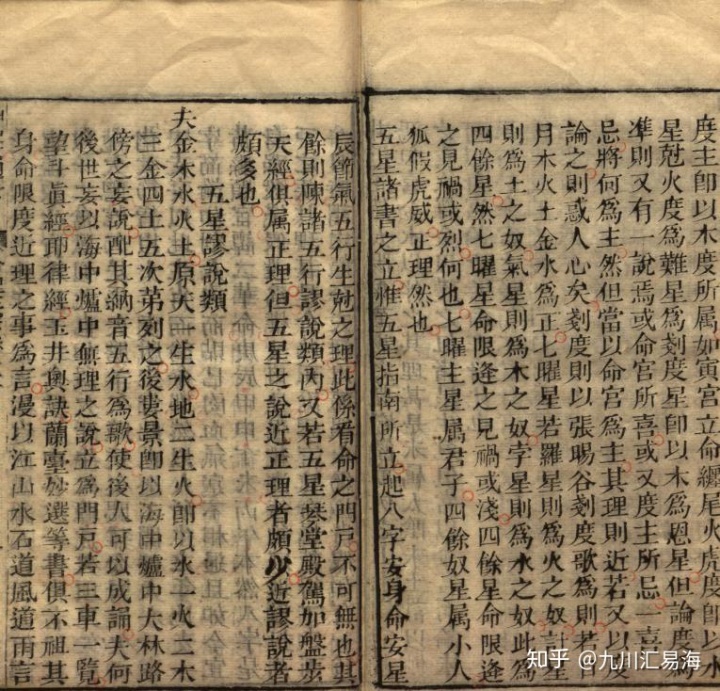 度主卽以木度所屬如寅宮立命纏尾火虎度卽以水
星尅火度爲難星度星卽以木爲恩星但論度爲
準則又有一說焉或命宮所喜或又度主所忌一喜一
忌將何爲主然但當以命宮爲主其理則近若又以度
論之則惑人心矣剗度則以張賜谷剗度歌爲則若日
月木火土金水爲正七曜星若羅星則爲火之奴計星
則爲土之奴氣星則爲木之奴孛星則爲水之奴此爲
四餘星然七曜星命限逢之見禍或淺四餘星命限逢
之見禍或烈何也七曜主星屬君子四餘奴星屬小人
狐假虎威正理然也
五星諸書之立惟五星指南所立起八字安身命安星
辰節氣五行生尅之理此係看命之門戸不可無也其
餘則陳諸五行謬說類內又若五星琴堂殿駕如盤步
天經俱屬正理但五星之說近正理者頗少近謬說者
頗多也
五星謬說類
夫金木水火土原天一生水地二生火卽以水一火二木
三金四土五次第列之後婁景卽以海中爐中大林路
傍之妄說配其納音五行爲歌使後人可以成誦夫何
後世妄以海中爐中無理之說立爲門戸若三車一覽
望斗眞經耶律經玉井奧訣蘭臺妙選等書俱不祖其
身命限度近理之事爲言漫以江山水石道風道雨言
知乎 @九川汇易海